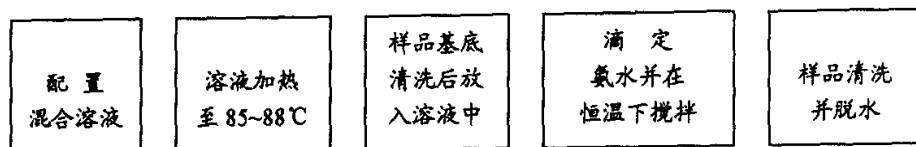 配置
混合溶液
溶液加热
至85~88℃
样品基底
清洗后放
入溶液中
滴定
氨水并在
恒温下搅拌
样品清洗
并脱水